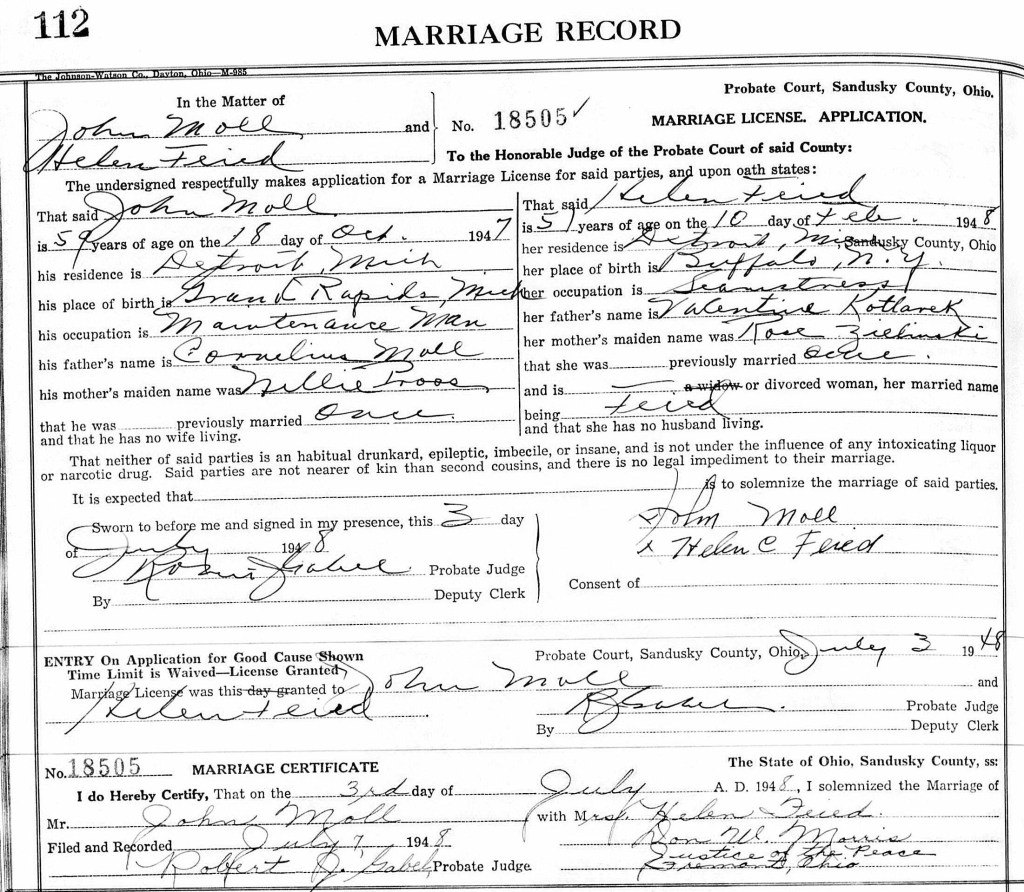 112
MARRIAGE RECORD
The Johnson-Watson Co., Dayton, Ohio—M-985
Probate Court, Sandusky County, Ohio.
In the Matter of
John Moll and
Helen Feied
No. 18505 ✓
MARRIAGE LICENSE. APPLICATION.
To the Honorable Judge of the Probate Court of said County:
The undersigned respectfully makes application for a Marriage License for said parties, and upon oath states:
That said John Moll
is 59 years of age on the 18 day of Oct. 1947
his residence is Detroit, Mich
his place of birth is Grand Rapids, Mich
his occupation is Maintenance Man
his father's name is Cornelius Moll
his mother's maiden name was Nellie Proos
that he was previously married Once.
and that he has no wife living.
That said Helen Feied
is 51 years of age on the 10 day of Feb. 1948
her residence is Detroit, Mich, Sandusky County, Ohio
her place of birth is Buffalo, N.Y.
her occupation is Seamstress
her father's name is Valentine Kotlarek
her mother's maiden name was Rose Zielinski
that she was previously married once.
and is a widow or divorced woman, her married name
being Feied
and that she has no husband living.
That neither of said parties is an habitual drunkard, epileptic, imbecile, or insane, and is not under the influence of any intoxicating liquor
or narcotic drug. Said parties are not nearer of kin than second cousins, and there is no legal impediment to their marriage.
It is expected that is to solemnize the marriage of said parties.
Sworn to before me and signed in my presence, this 3 day
of July 1948
Probate Judge
By Deputy Clerk
x John Moll
x Helen C Feied
Consent of
ENTRY On Application for Good Cause Shown
Time Limit is Waived—License Granted
Marriage License was this day granted to John Moll and
Helen Feied
Probate Court, Sandusky County, Ohio, July 3 1948
RJGabel. Probate Judge
By Deputy Clerk
No. 18505 MARRIAGE CERTIFICATE
The State of Ohio, Sandusky County, ss:
I do Hereby Certify, That on the 3rd day of July A. D. 1948, I solemnized the Marriage of
Mr. John Moll with Mrs. Helen Feied.
Filed and Recorded July 7 1948
Robert J. Gabel, Probate Judge
Don W. Morris
Justice of the Peace
Fremont, Ohio